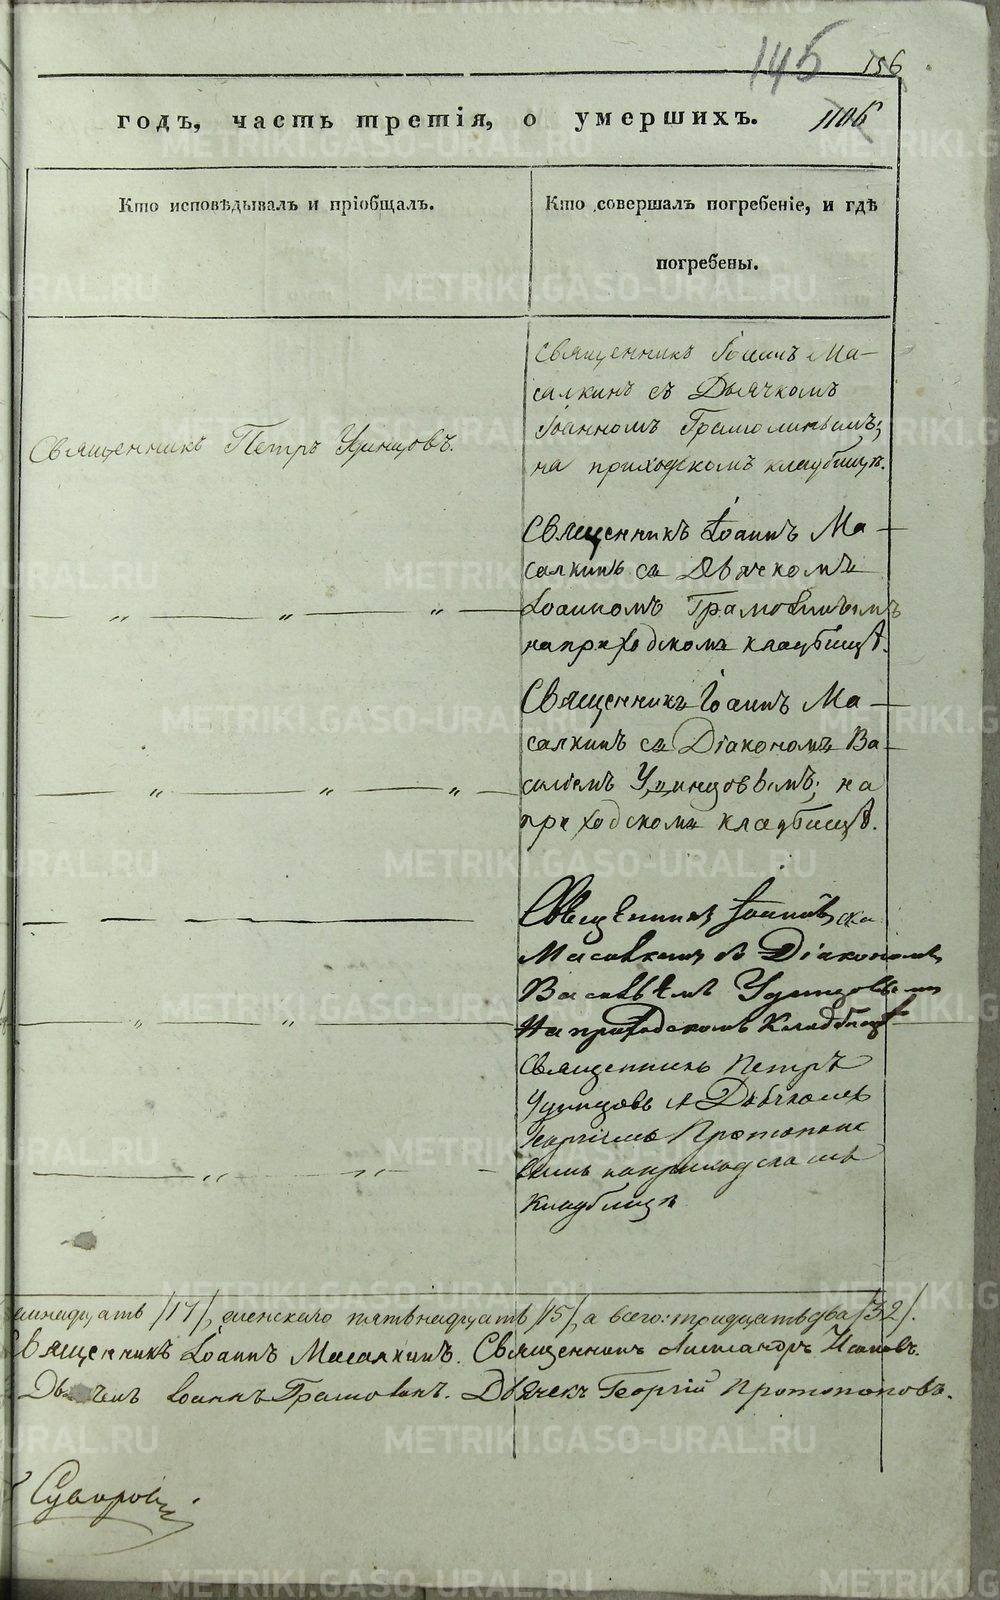 145 156
годъ, часть третія, о умершихъ. 1106
Кто исповѣдывалъ и пріобщалъ.
Кто совершалъ погребеніе, и гдѣ
погребены.
Священникъ Петръ Удинцовъ.
Священникъ Іоаннъ Ма-
салкинъ съ Дьячкомъ
Іоанномъ Грамолинымъ;
на приходскомъ кладбищѣ.
Священникъ Іоаннъ Ма-
салкинъ съ Дьячкомъ
Іоанномъ Грамолинымъ
на приходскомъ кладбищѣ.
Священникъ Іоаннъ Ма-
салкинъ съ Діакономъ Ва-
силіемъ Удинцовымъ; на
приходскомъ кладбищѣ.
Священникъ Іоаннъ
Масалкинъ съ Діакономъ
Васильемъ Удинцовымъ
На приходскомъ Кладбищѣ
Священникъ Петръ
Удинцовъ с Дьячкомъ
Георгіемъ Протопопо
вымъ на приходскомъ
Кладбищѣ
/17/, женскаго пятьнадцать /15/, а всего: тридцать два /32/.
Священникъ Іоаннъ Масалкинъ. Священникъ Александръ
Іоаннъ Грамолинъ. Дьячекъ Георгій Протопоповъ.
Суворовъ
METRIKI.GASO-URAL.RU